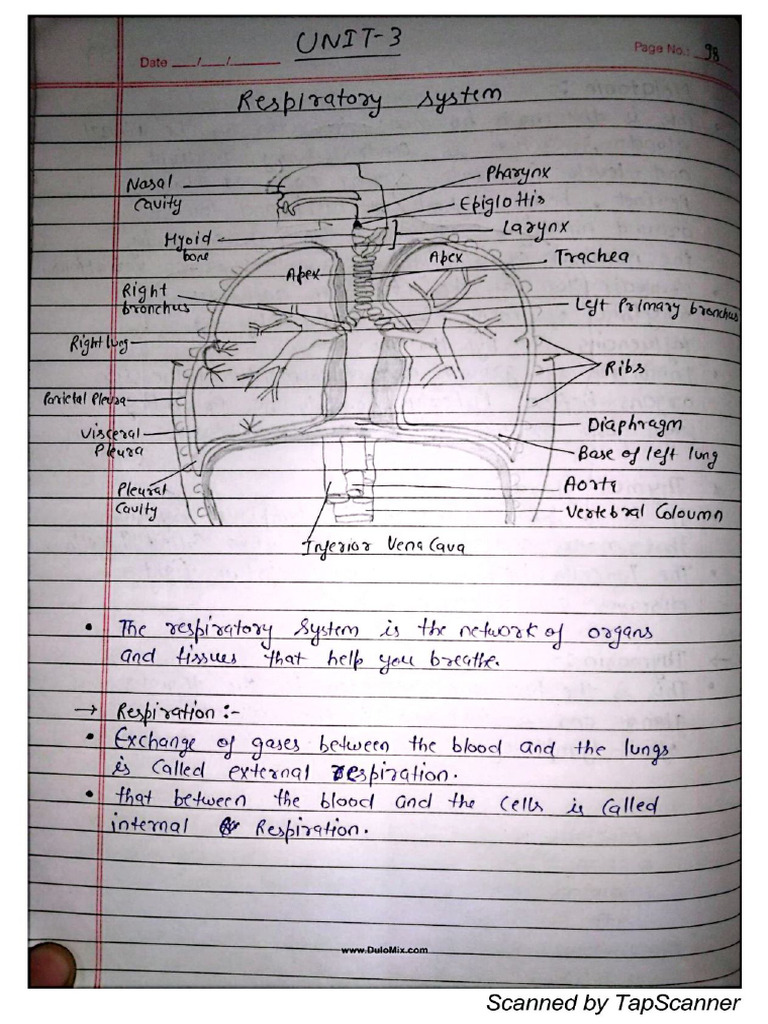 UNIT-3
Date __/__/____
Page No.: 98
Respiratory system
Nasal cavity
Pharynx
Epiglottis
Hyoid bone
Larynx
Apex
Apex
Trachea
Right bronchus
Left Primary bronchus
Right lung
Ribs
Parietal Pleura
Visceral Pleura
Diaphragm
Base of left lung
Pleural cavity
Aorta
Vertebral Coloumn
Inferior Vena Cava
• The respiratory system is the network of organs
and tissues that help you breathe.
→ Respiration :-
• Exchange of gases between the blood and the lungs
is called external respiration.
• that between the blood and the cells is called
internal Respiration.
www.DuloMix.com
Scanned by TapScanner